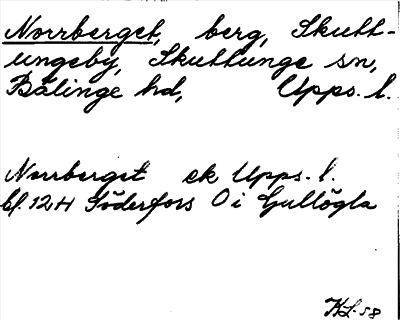 Norrberget, berg, Skutt-
ungeby, Skuttunge sn,
Bälinge hd, Upps. l.
Norrberget ek Upps. l.
bl. 12H Söderfors O i Gullögla
KL-58